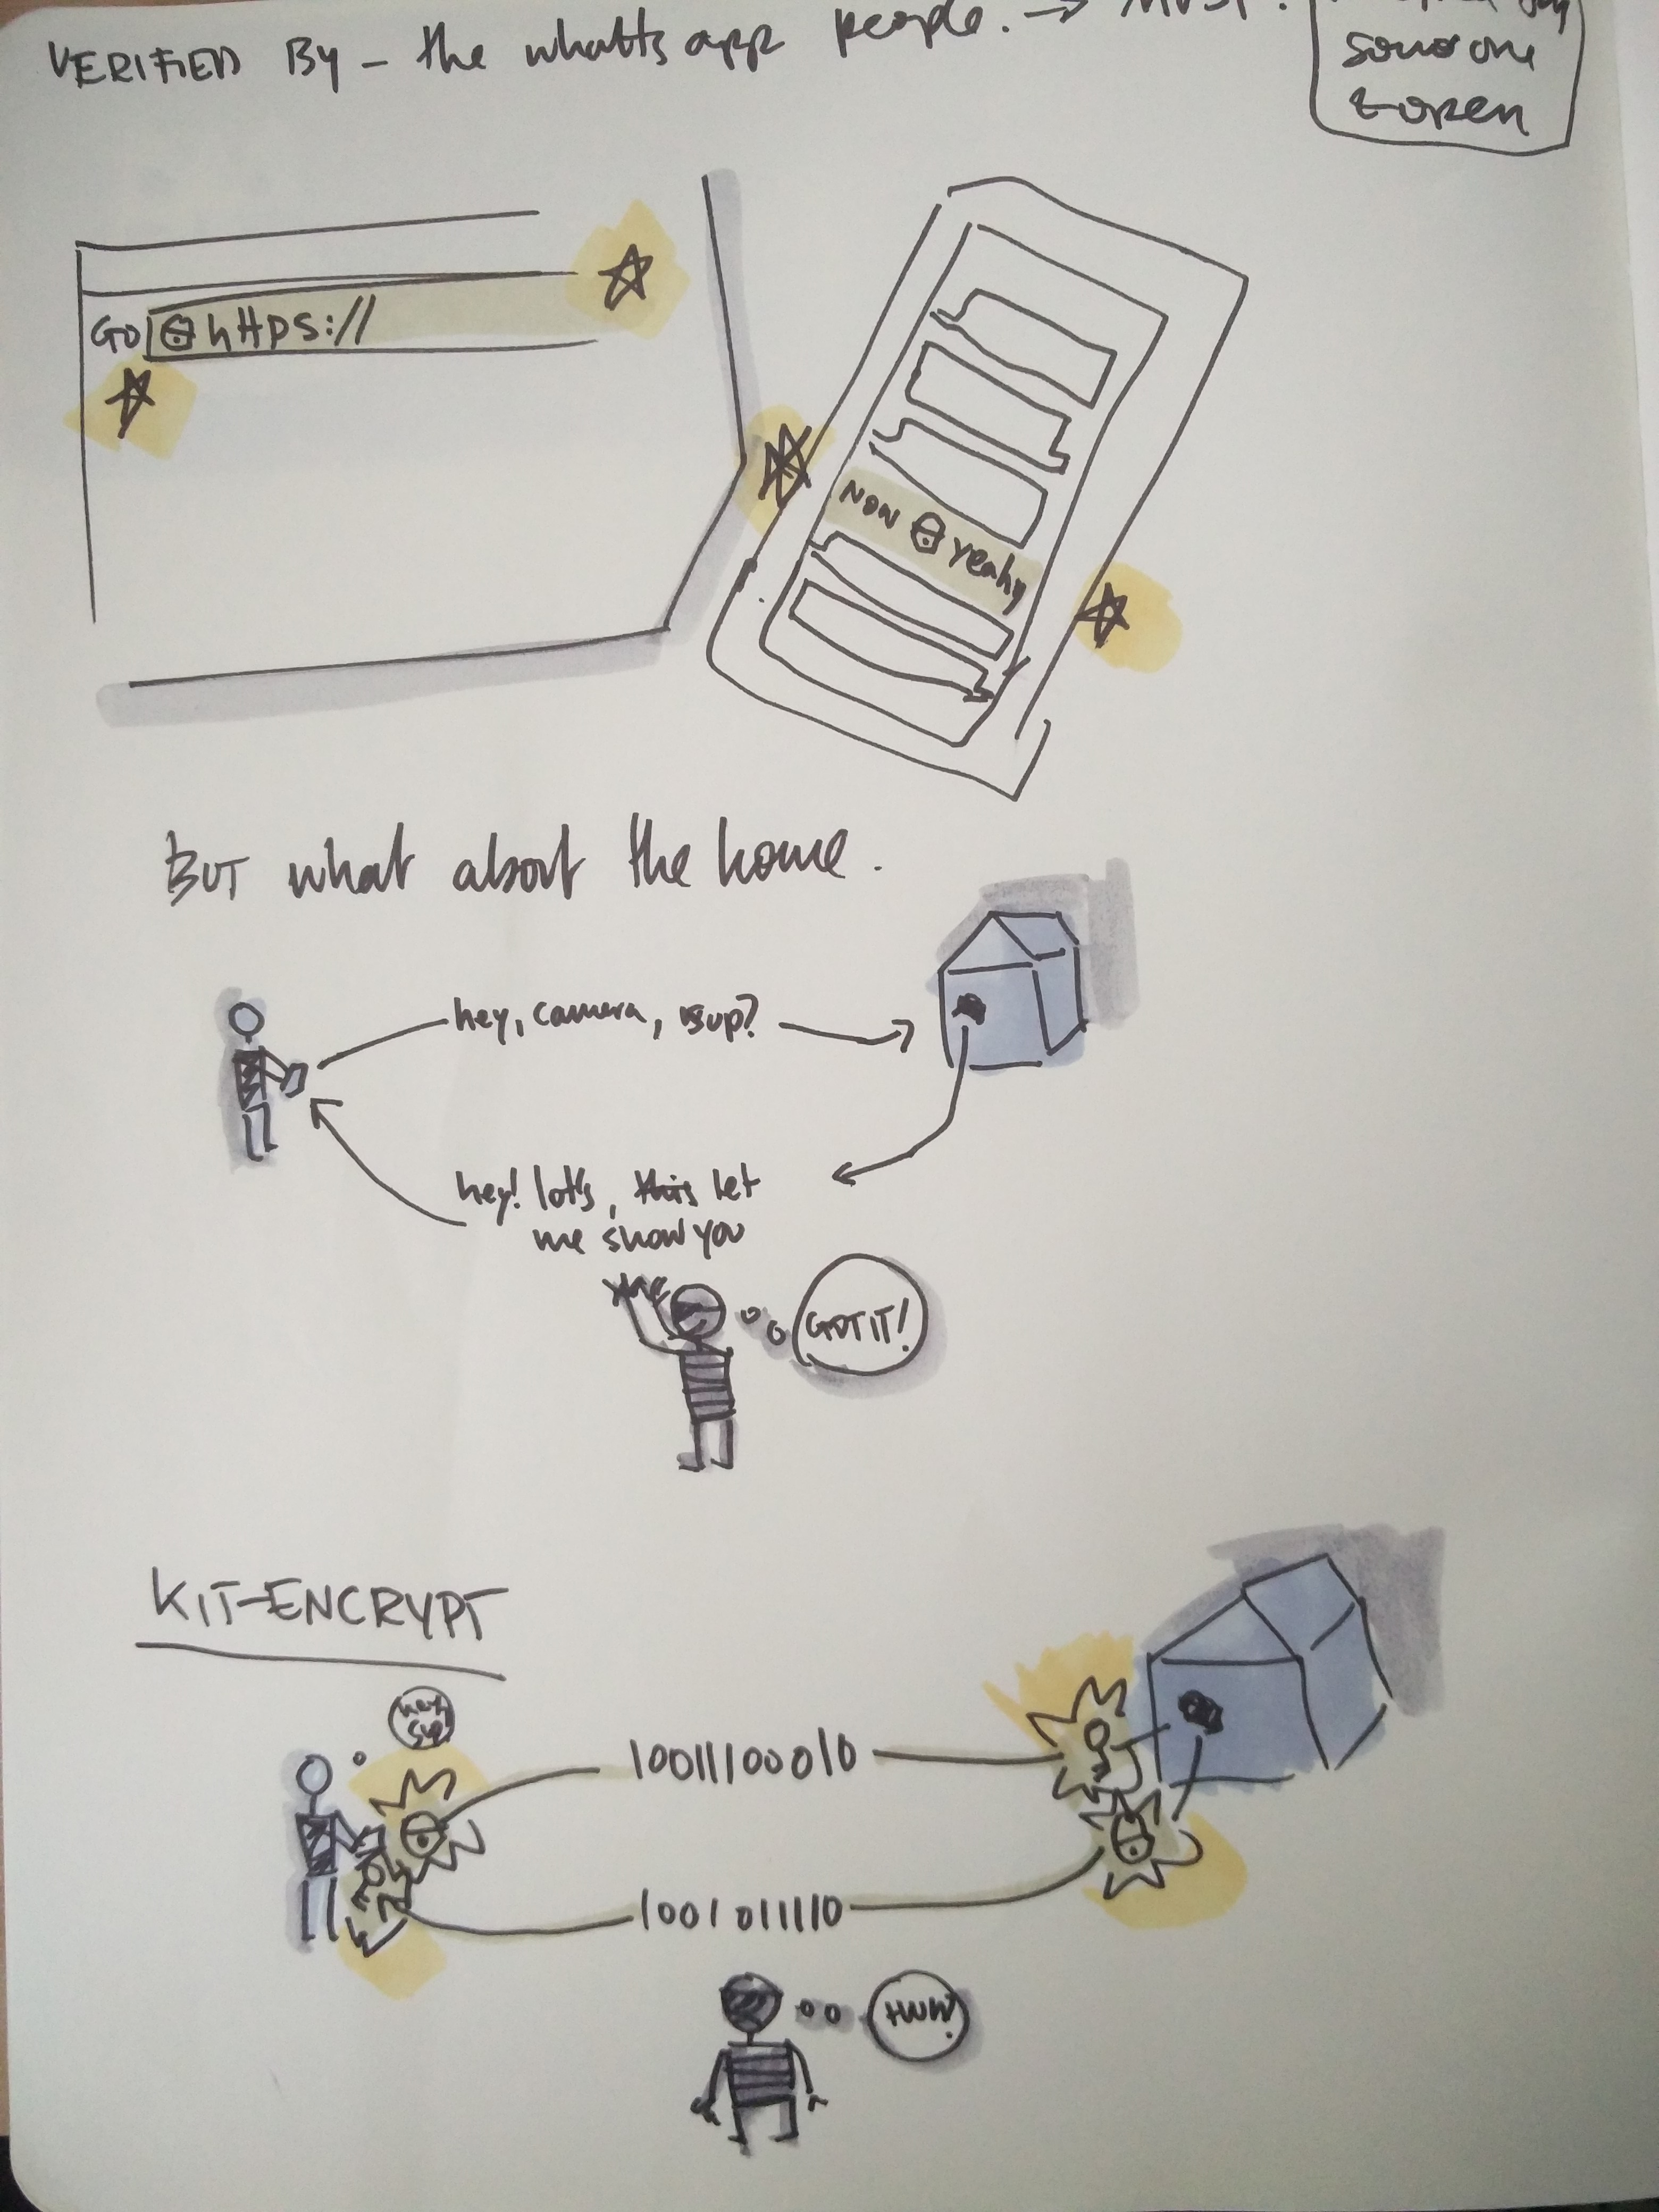 VERIFIED By - the whattsapp people. →
someone
token
GO https://
NOW yeahy
BUT what about the home.
hey, camera, wsup?
hey! lots, this let
me show you
GOT IT!
KIT-ENCRYPT
hey
sup
10011100010
1001011110